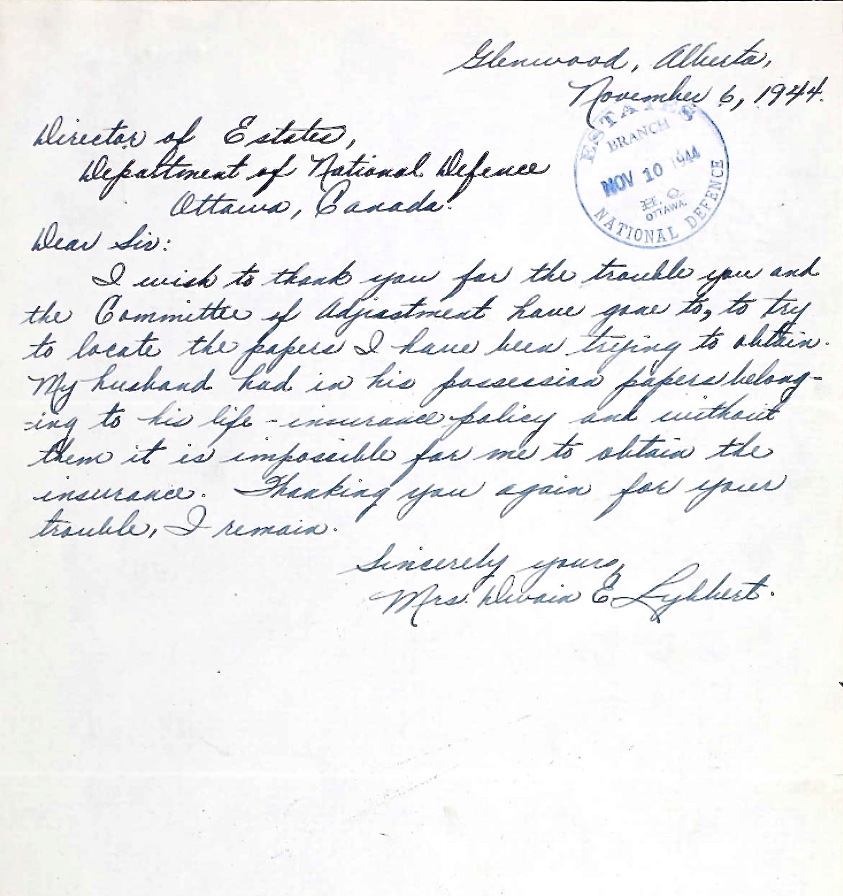 Glenwood, Alberta,
November 6, 1944.
ESTATES
BRANCH
NOV 10 1944
H.Q.
OTTAWA.
NATIONAL DEFENCE
Director of Estates,
Department of National Defence
Ottawa, Canada.
Dear Sir:
I wish to thank you for the trouble you and
the Committee of Adjustment have gone to, to try
to locate the papers I have been trying to obtain.
My husband had in his possession papers belong-
-ing to his life-insurance policy and without
them it is impossible for me to obtain the
insurance. Thanking you again for your
trouble, I remain.
Sincerely yours,
Mrs. Dwain E Lybbert.